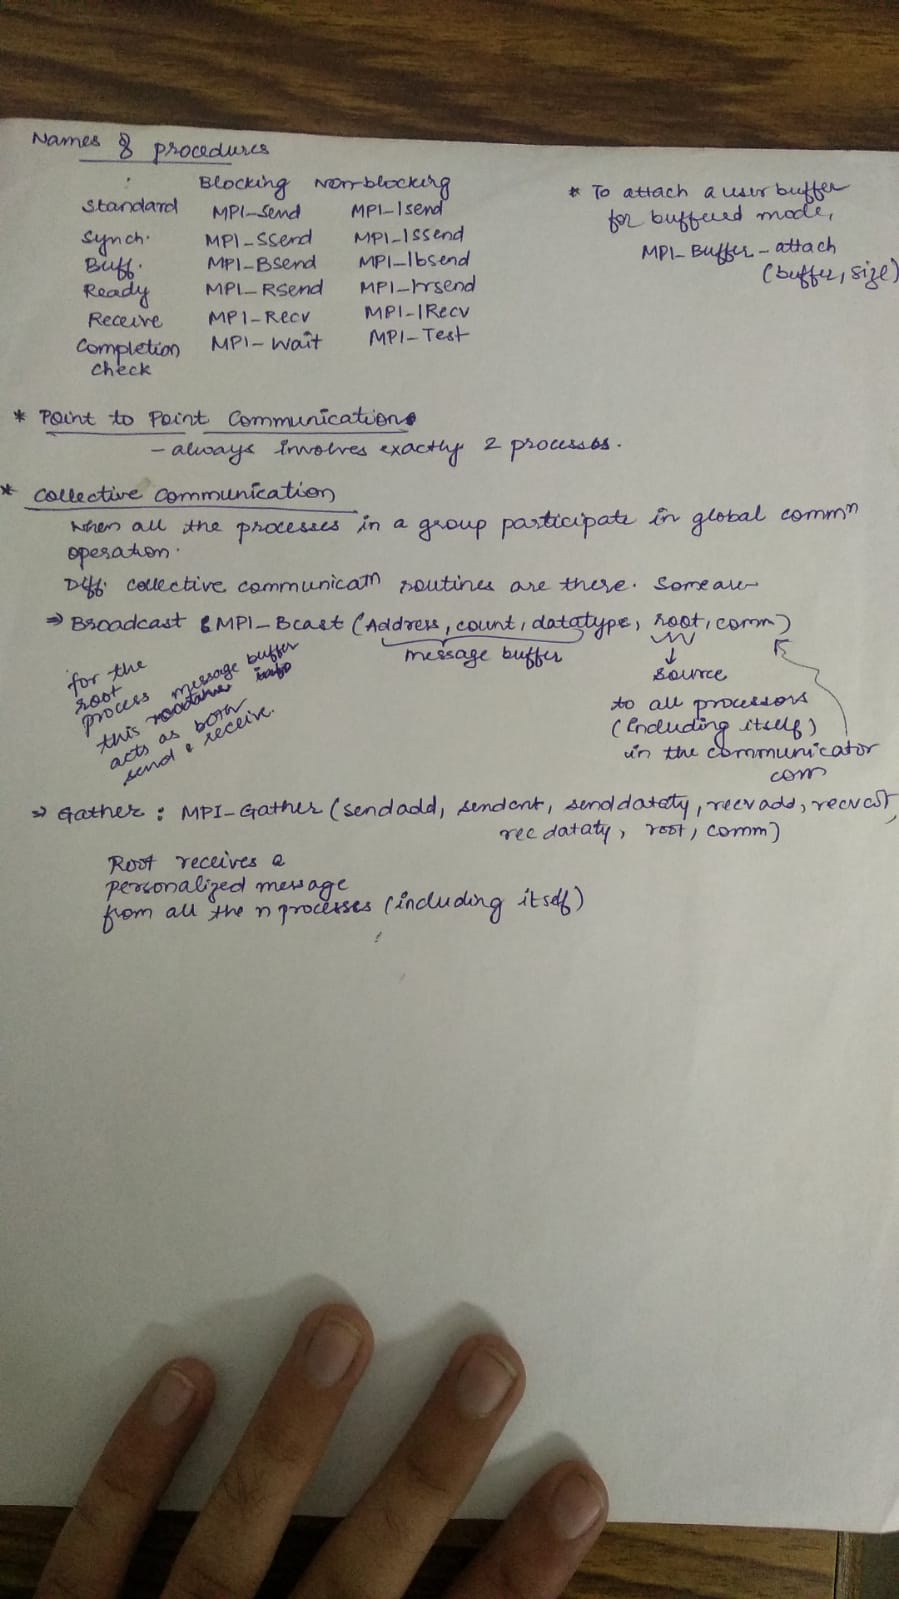 Names & procedures
Blocking Nonblocking
Standard MPI_Send MPI_Isend
Synch. MPI_Ssend MPI_Issend
Buff. MPI_Bsend MPI_Ibsend
Ready MPI_RSend MPI_Irsend
Receive MPI_Recv MPI_IRecv
Completion MPI_Wait MPI_Test
check
* To attach a user buffer
for buffered mode,
MPI_Buffer_attach
(buffer, size)
* Point to Point Communication
- always involves exactly 2 processes.
* Collective Communication
When all the processes in a group participate in global commⁿ
operation.
Diff. collective communicatn routines are there. Some are
⇒ Broadcast : MPI_Bcast (Address, count, datatype, root, comm)
message buffer
↓
source
to all processors
(including itself)
in the communicator
com
for the
root
process message buffer
this
acts as both
send & receive.
⇒ Gather : MPI_Gather (sendadd, sendcnt, senddataty, recvadd, recvcnt,
recdataty, root, comm)
Root receives a
personalized message
from all the n processes (including itself)